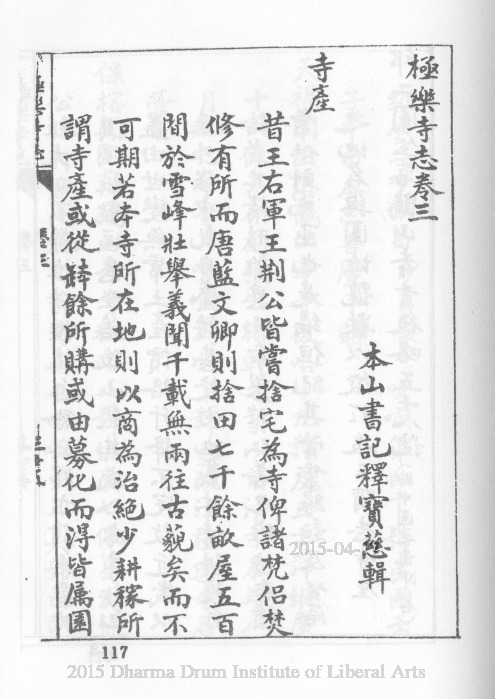 極樂寺志卷三
本山書記釋寶慈輯
寺產
昔王右軍王荆公皆嘗捨宅為寺俾諸梵侶焚
修有所而唐藍文卿則捨田七千餘畝屋五百
間於雪峰壯舉義聞千載無兩往古藐矣而不
可期若本寺所在地則以商為治絶少耕稼所
謂寺產或從鉢餘所購或由募化而得皆属園
117
2015-04-
2015 Dharma Drum Institute of Liberal Arts